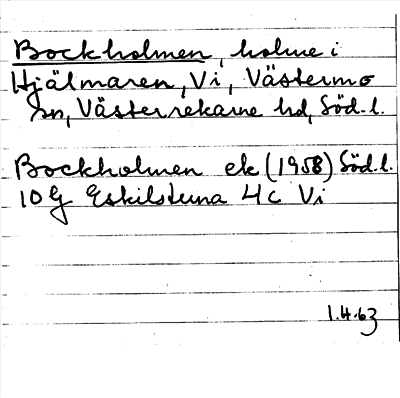 Bockholmen, holme i
Hjälmaren, Vi, Västermo
sn, Västerrekarne hd, Söd. l.
Bockholmen ek (1958) Söd. l.
10 G Eskilstuna 4 c Vi
1.4.63